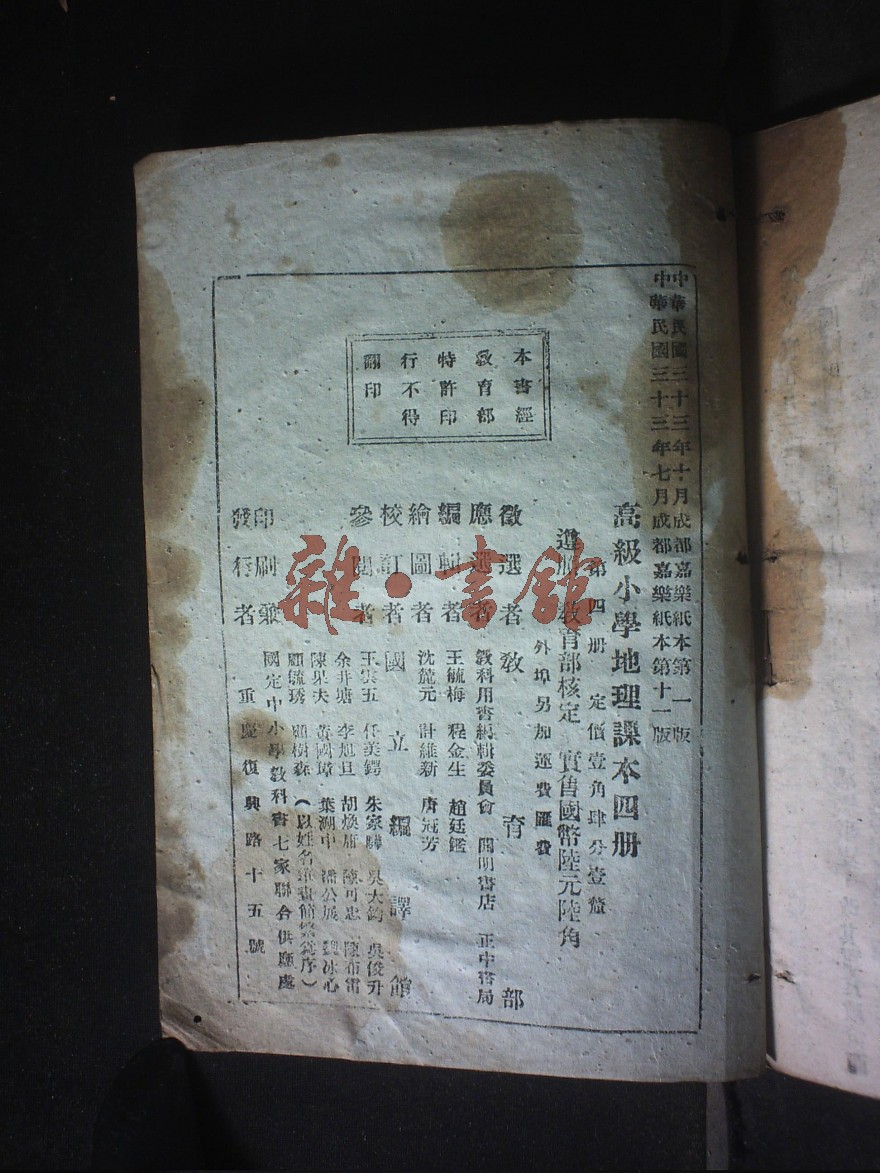 中華民國三十三年十月成都嘉樂紙本第一版
中華民國三十三年七月成都嘉樂紙本第十一版
高級小學地理課本四册
第四册 定價壹角肆分壹釐
遵照教育部核定 實售國幣陸元陸角
外埠另加運費匯費
徵選者 教育部
應選者 教科用書編輯委員會 開明書店 正中書局
編輯者 王毓梅 程金生 趙廷鑑
繪圖者 沈麓元 計維新 唐冠芳
校訂者 國立編譯館
參閱者 王雲五 任美鍔 朱家驊 吳大鈞 吳俊升
余井塘 李旭旦 胡煥庸 陳可忠 陳布雷
陳果夫 黃國璋 葉溯中 潘公展 魏冰心
顧毓琇 顧樹森 (以姓名筆畫簡繁爲序)
印刷
發行者 國定中小學教科書七家聯合供應處
重慶復興路十五號
本書經
教育部
特許印
行不得
翻印
雜·書館